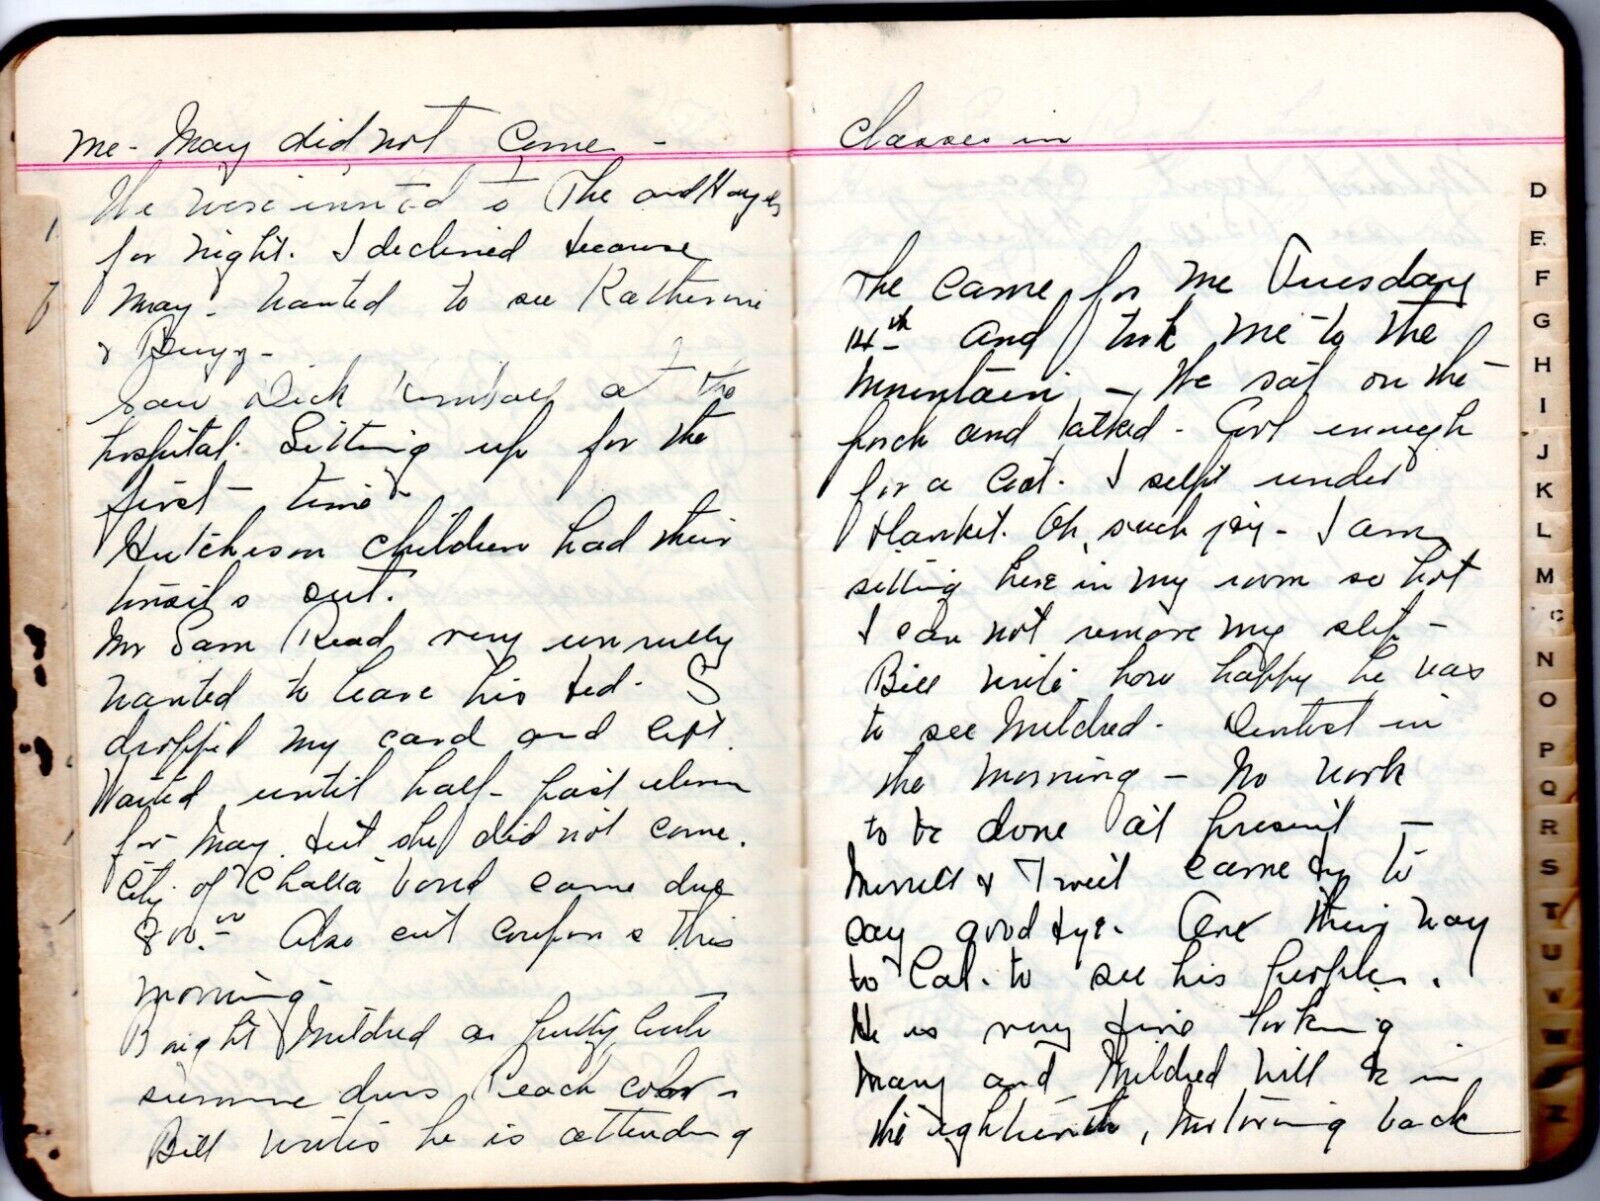 me - May did not come -
We were invited to The and Hayes
for night. I declined because
May - wanted to see Katherine
&
Saw Dick Kimball at the
hospital. Sitting up for the
first - time -
Hutcheson children had their
tonsils out.
Mr Sam Read very unruly
wanted to leave his bed. S
dropped my card and left.
Waited until half - past eleven
for May but she did not come.
City of Chatta bond came due
Also cut coupons this
morning -
Bought Mildred a pretty little
summer dress Peach color -
Bill writes he is attending
classes in
The came for me Tuesday
14th and took me to the
Mountain - We sat on the
porch and talked - Cool enough
for a coat. I selpt under
blanket. Oh, such joy - I am
sitting here in my room so hot
I can not remove my slip -
Bill write how happy he was
to see Mildred - Dentist in
the morning - No work
to be done at present -
Merrell & came by to
say good bye - thing way
to Cal. to see his people.
He is very fine looking
Mary and Mildred will be in
the eighteenth, motoring back
D
E
F
G
H
I
J
K
L
M
C
N
O
P
Q
R
S
T
U
V
W
Z